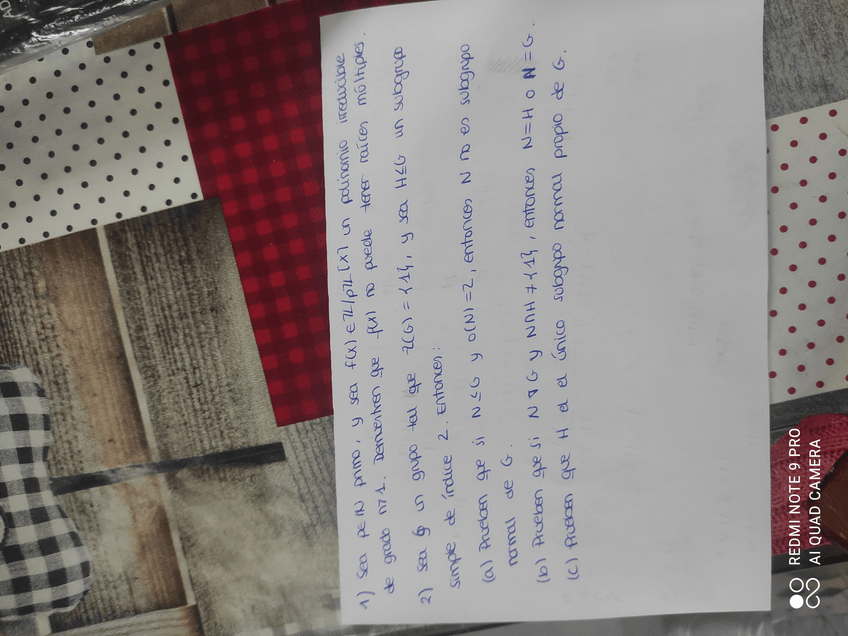 1) Sea p∈ℕ primo, y sea f(x)∈ℤ/pℤ[x] un polinomio irreducible
de grado n>1. Demuestren que f(x) no puede tener raíces múltiples.
2) Sea G un grupo tal que Z(G) = {1}, y sea H≤G un subgrupo
simple de índice 2. Entonces:
(a) Prueben que si N≤G y o(N)=2, entonces N no es subgrupo
normal de G.
(b) Prueben que si N ⊲ G y N∩H ≠ {1}, entonces N=H o N=G.
(c) Prueben que H el el único subgrupo normal propio de G.
REDMI NOTE 9 PRO
AI QUAD CAMERA